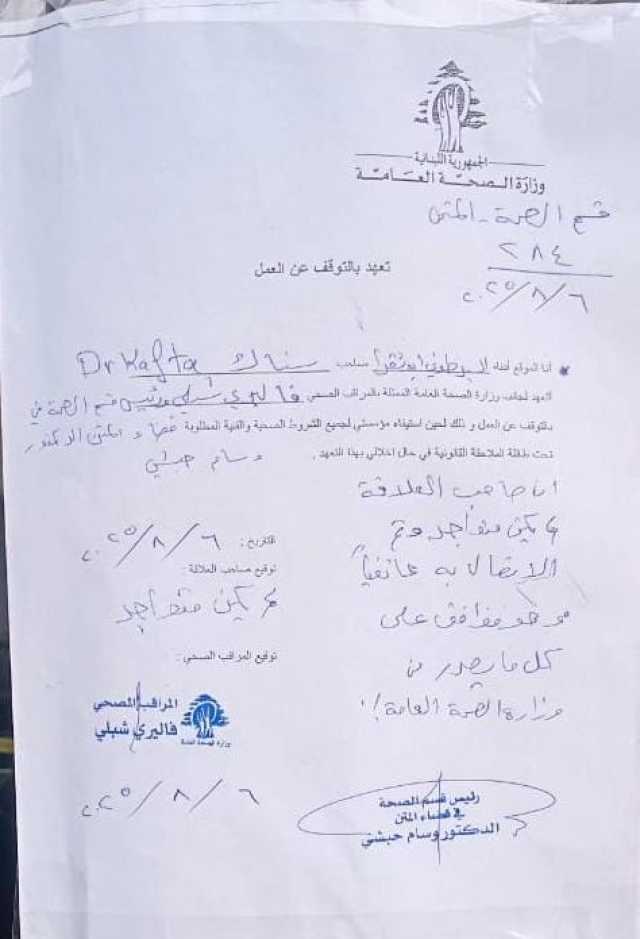 الجمهورية اللبنانية
وزارة الصحة العامة
قسم الصحة - المتن
٢٨٤
٢٠٢٥/٨/٦
تعهد بالتوقف عن العمل
* أنا الموقع أدناه صاحب سناك Dr Kafta
أتعهد لجانب وزارة الصحة العامة الممثلة بالمراقب الصحي فاليري شبلي ورئيس قسم الصحة في
بالتوقف عن العمل و ذلك لحين استيفاء مؤسستي لجميع الشروط الصحية والفنية المطلوبة قضاء المتن الدكتور
تحت طائلة الملاحقة القانونية في حال اخلالي بهذا التعهد . وسام حبشي
ان صاحب العلاقة
لم يكن متواجد وتم
الإتصال به هاتفياً
وهو موافق على
كل ما يصدر من
وزارة الصحة العامة
التاريخ : ٢٠٢٥/٨/٦
توقيع صاحب العلاقة :
لم يكن متواجد
توقيع المراقب الصحي :
المراقب الصحي
فاليري شبلي
وزارة الصحة العامة
٢٠٢٥/٨/٦
رئيس قسم الصحة
في قضاء المتن
الدكتور وسام حبشي